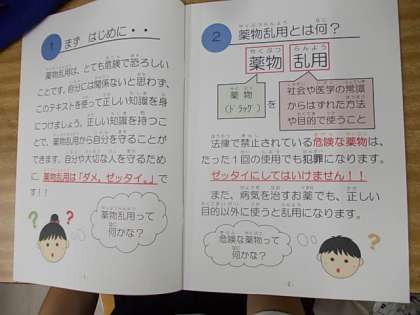 1 まず はじめに・・
薬物乱用は、とても危険で恐ろしい
ことです。自分には関係ないと思わず、
このテキストを使って正しい知識を身
につけましょう。正しい知識を持つこ
とで、薬物乱用から自分を守ることが
できます。自分や大切な人を守るため
に 薬物乱用は「ダメ。ゼッタイ。」で
す！！
薬物乱用って
何かな？
2 薬物乱用とは何？
薬物 乱用
薬物
(ドラッグ)
を
社会や医学の常識
からはずれた方法
や目的で使うこと
法律で禁止されている危険な薬物は、
たった１回の使用でも犯罪になります。
ゼッタイにしてはいけません！！
また、病気を治すお薬でも、正しい
目的以外に使うと乱用になります。
危険な薬物って
何かな？